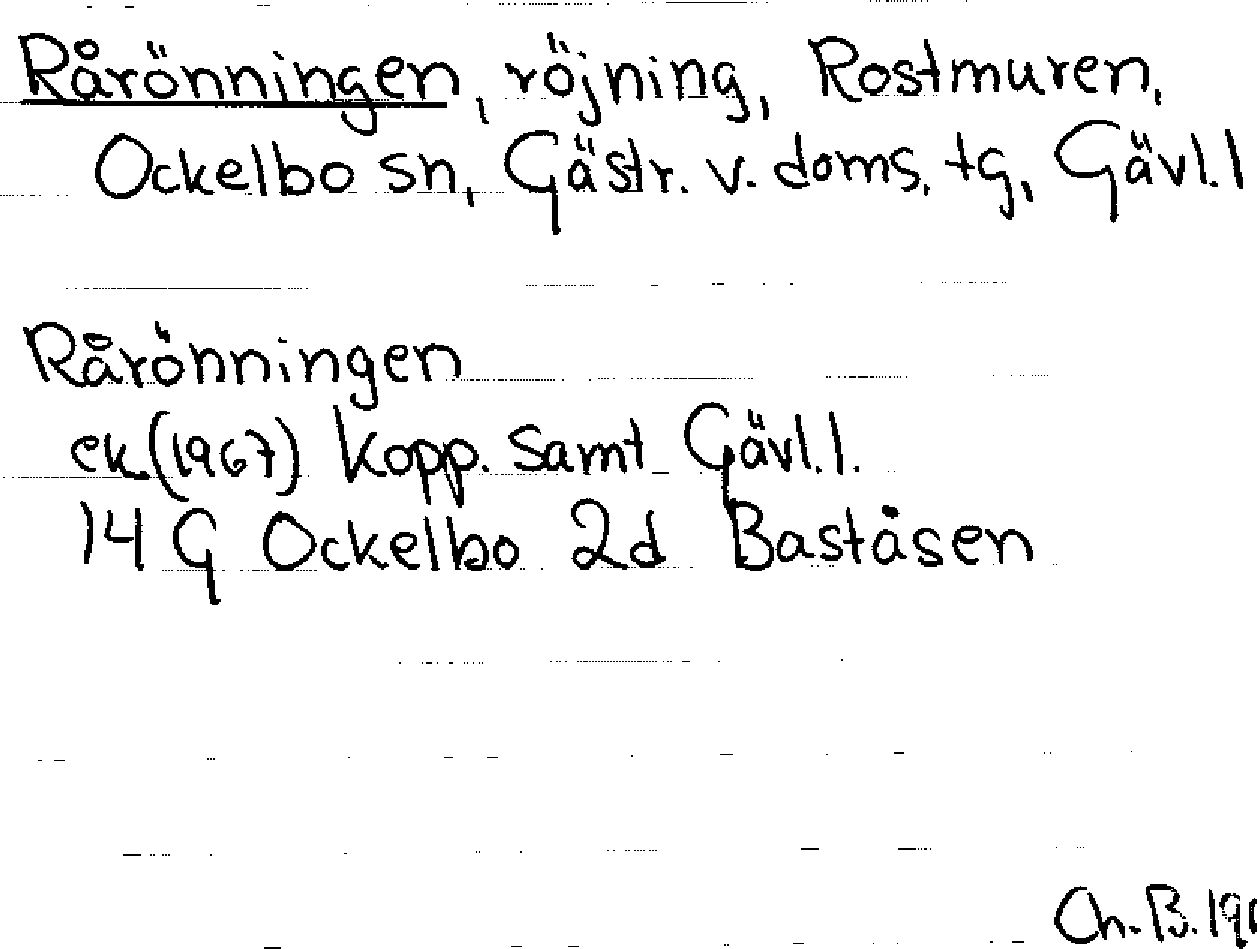 Rårönningen, röjning, Rostmuren,
Ockelbo sn, Gästr. v. doms. tg, Gävl.l
Rårönningen
ek (1967) Kopp. samt Gävl.l.
14 G Ockelbo 2d Baståsen
Ch. B.